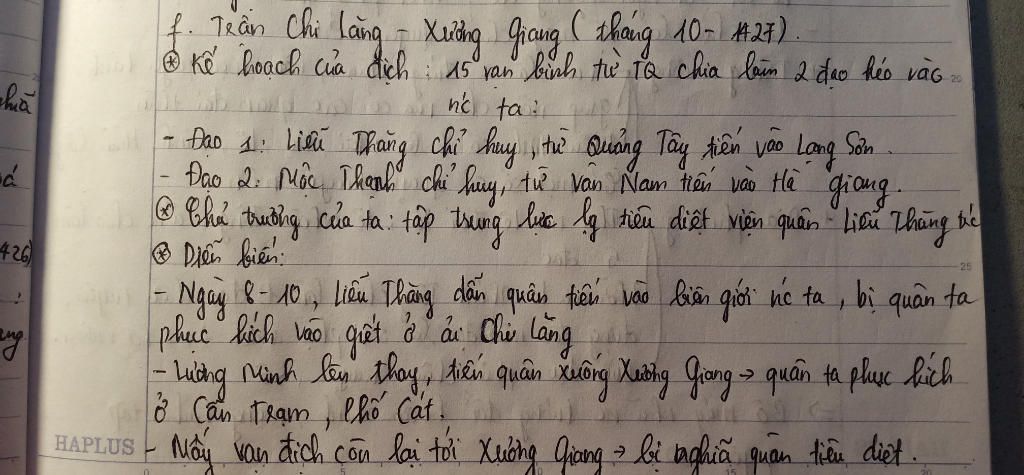 f. Trận Chi Lăng - Xương Giang (tháng 10-1427).
⊛ Kế hoạch của địch: 15 vạn binh từ TQ chia làm 2 đạo kéo vào
n'c ta:
- Đạo 1: Liễu Thăng chỉ huy, từ Quảng Tây tiến vào Lạng Sơn.
- Đạo 2: Mộc Thạnh chỉ huy, từ Vân Nam tiến vào Hà Giang.
⊛ Chủ trương của ta: tập trung lực lg tiêu diệt viện quân Liễu Thăng trc
426)
⊛ Diễn biến:
- Ngày 8-10, Liễu Thăng dẫn quân tiến vào biên giới n'c ta, bị quân ta
phục kích vào giết ở ải Chi Lăng
- Lương Minh lên thay, tiến quân xuống Xương Giang → quân ta phục kích
ở Cần Trạm, Phố Cát.
HAPLUS - Mấy vạn địch còn lại tới Xương Giang → bị nghĩa quân tiêu diệt.